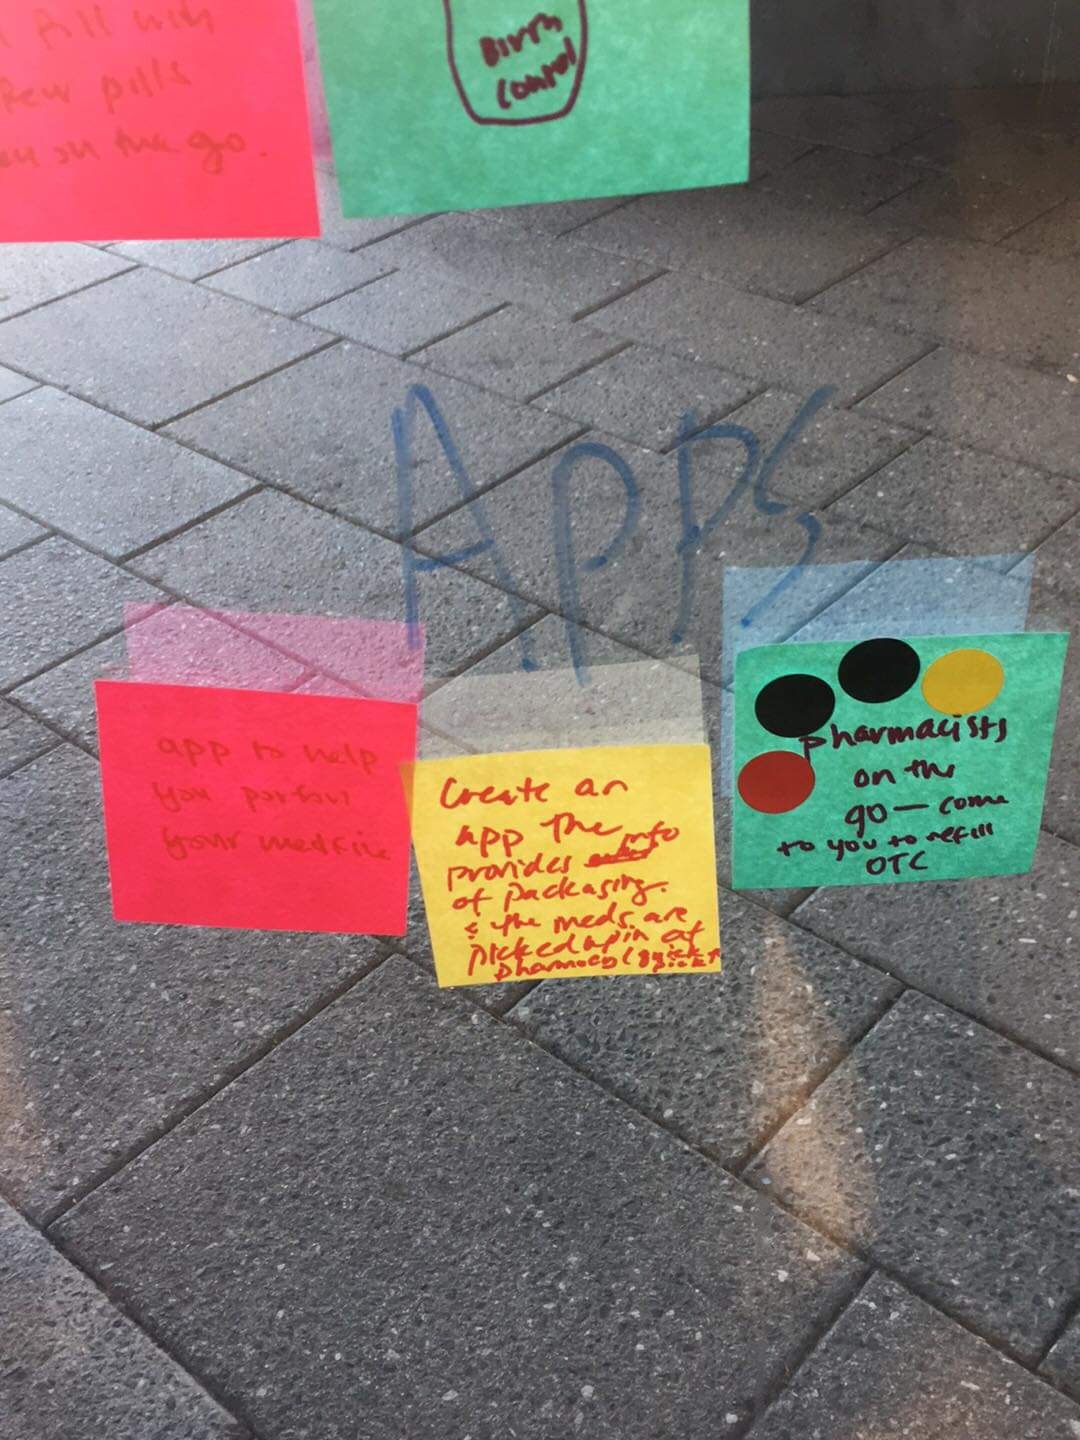 pill with
few pills
on the go.
Birth
Control
APPS
app to help
you
your
Create an
app the
provides info
of packaging.
& the meds are
picked up in at
pharmacy
pharmacists
on the
go — come
to you to refill
OTC